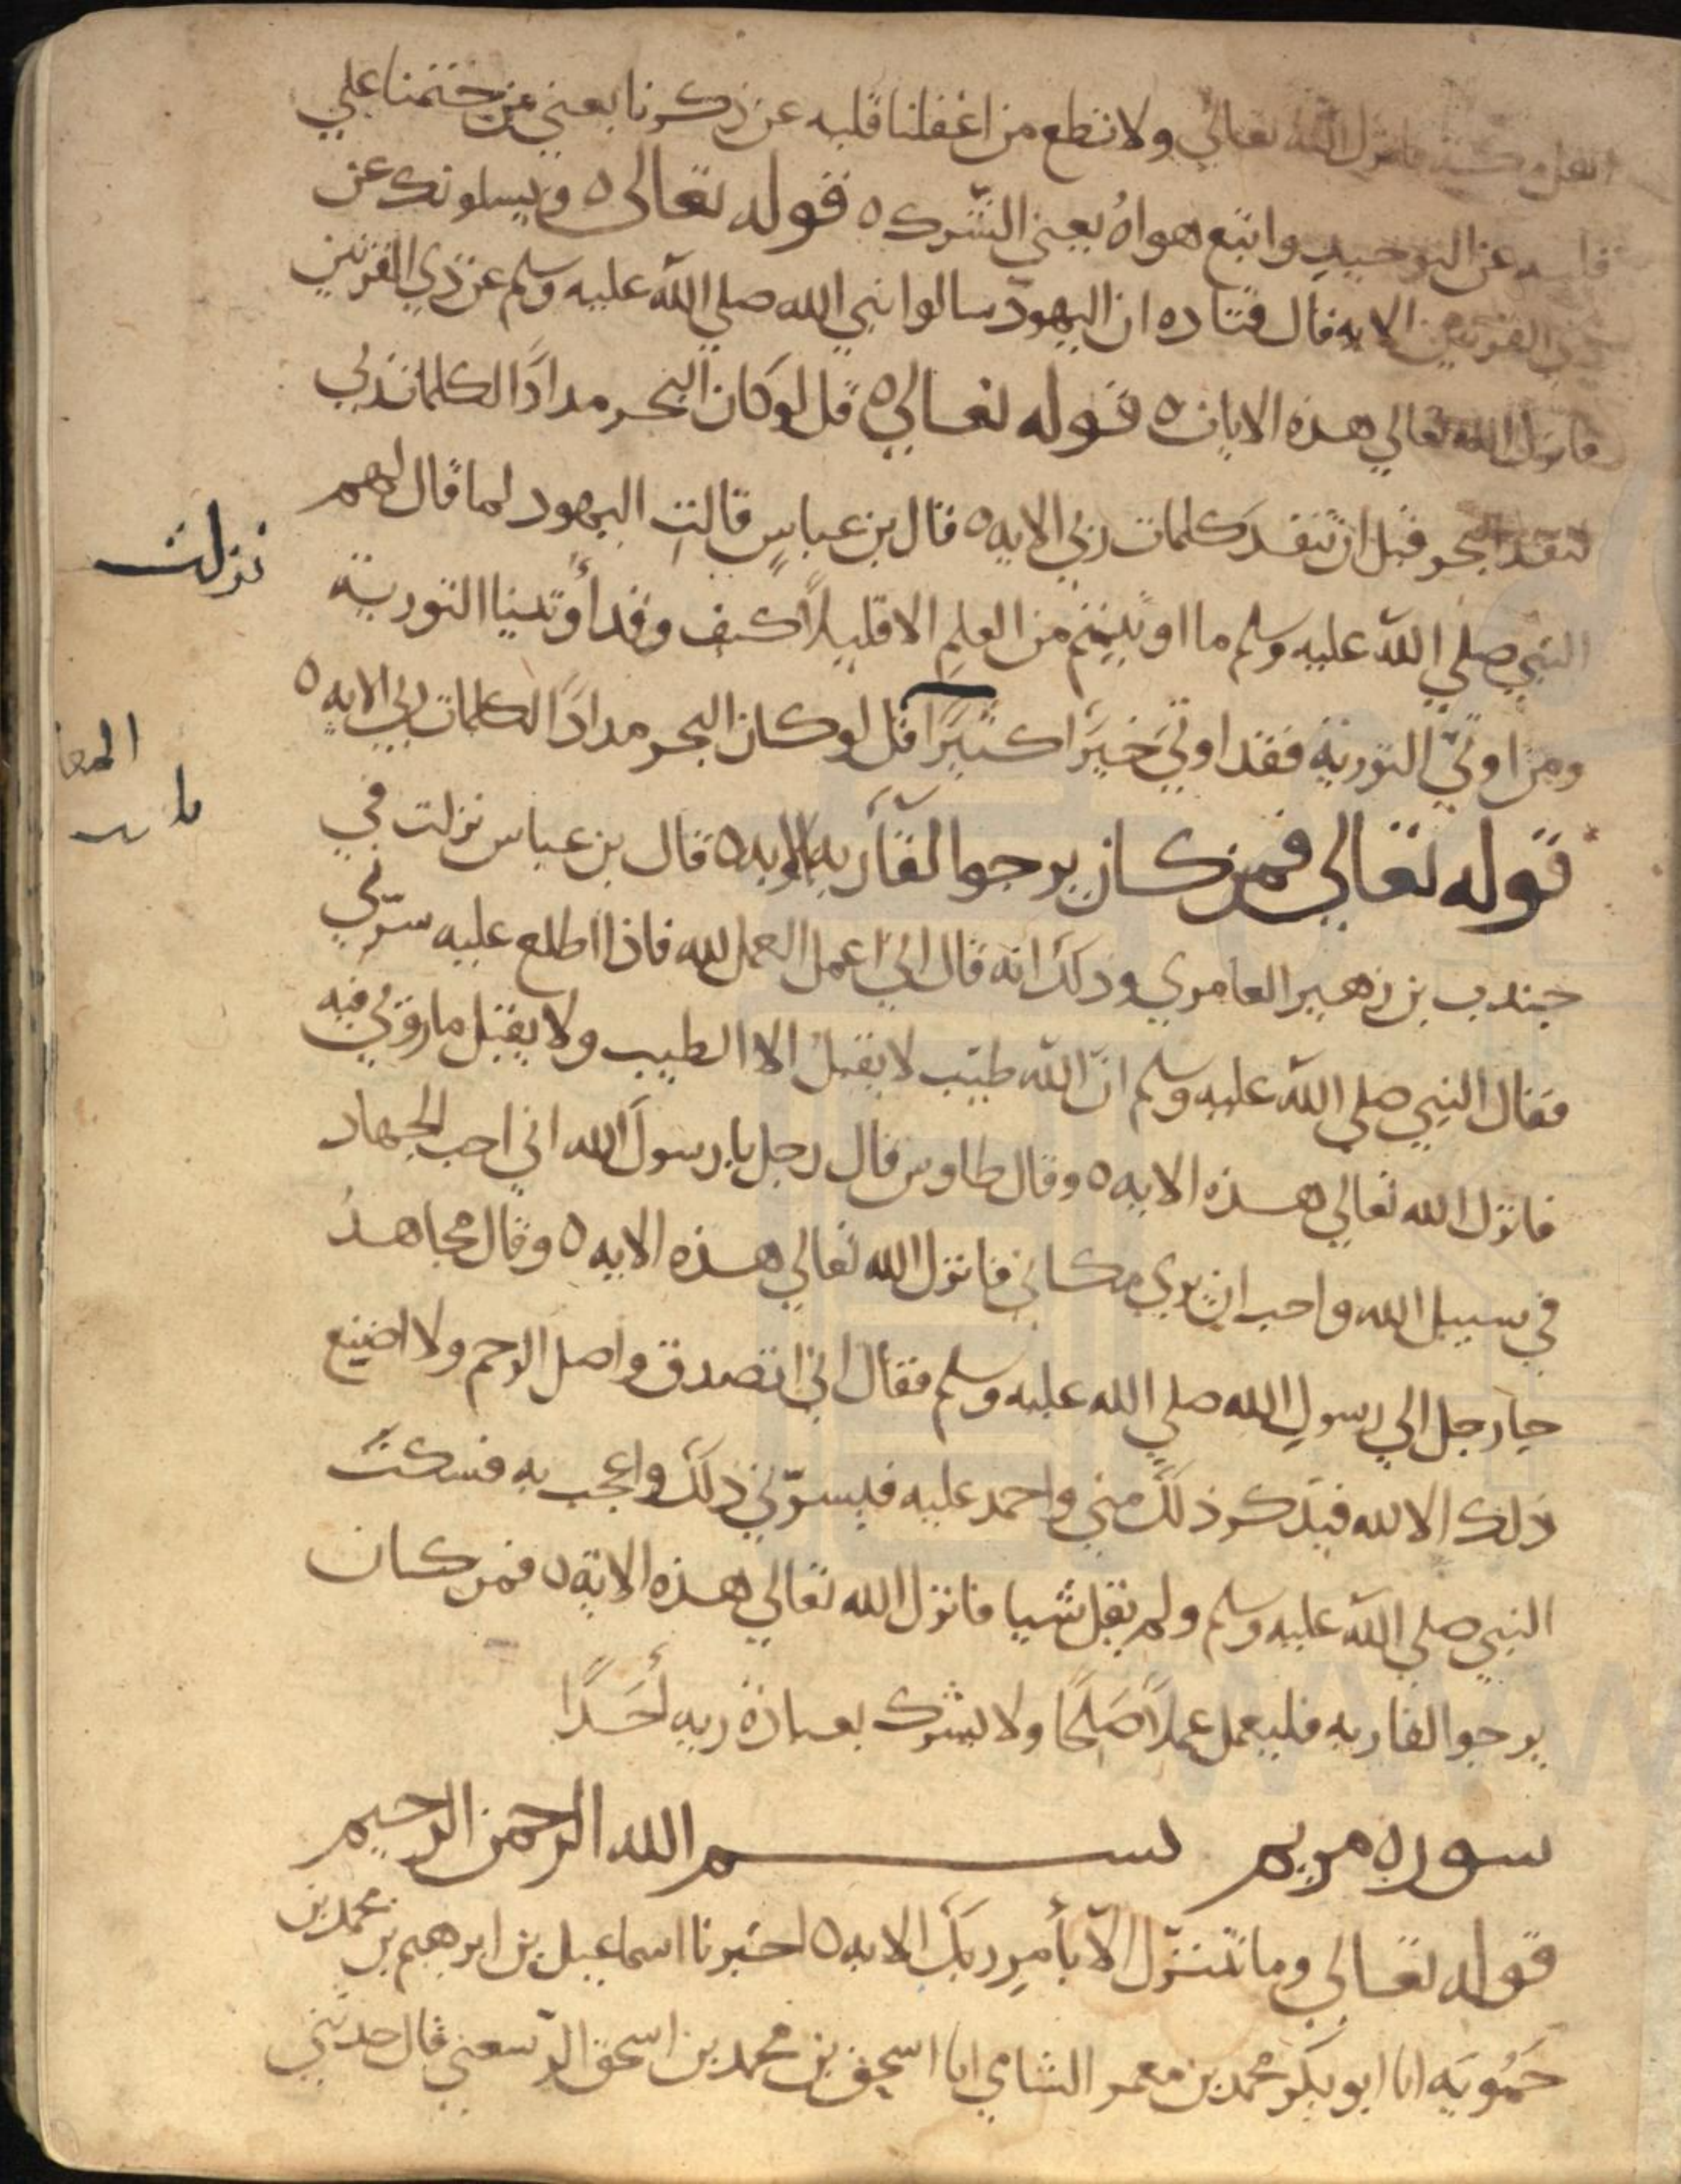 اهل مكة فانزل الله تعالى ولا تطع من اغفلنا قلبه عن ذكرنا يعني من ختمنا علي
قلبه عن التوحيد واتبع هواهُ يعني الشرك ٥ قوله تعالى ٥ ويسلونك عن
ذي القرنين الايه قال قتاده ان اليهود سالوا نبي الله صلي الله عليه وسلم عن ذي القرنين
فانزل الله تعالي هذه الايات ٥ قوله تعالي ٥ قل لو كان البحر مدادًا لكلمات ربي
لنفد البحر قبل ان تنفدَ كلمات ربي الايه ٥ قال بن عباسٍ قالتِ اليهود لما قال لهم
النبي صلي الله عليه وسلم ما اوتيتم من العلمِ الا قليلاً كيف وقد أُوتينا التورية
ومن اوتي التورية فقد اوتيَ خيرًا كثيرًا قل لو كان البحر مدادًا لكلمات ربي الايه ٥
قوله تعالي فمن كان يرجوا لقآء ربه الايه ٥ قال بن عباس نزلت في
جندب بن زهير العامري وذلك انه قال اني اعمل العمل لله فاذا اطلع عليه سرّني
فقال النبي صلي الله عليه وسلم انّ الله طيّب لا يقبلُ الا الطيب ولا يقبل ما روئي فيه
فانزل الله تعالي هذه الايه ٥ وقال طاوس قال رجل يا رسولَ الله اني احب الجهاد
في سبيل الله واحب ان يري مكاني فانزل الله تعالي هذه الايه ٥ وقال مجاهدُ
جا رجل الي رسولِ الله صلي الله عليه وسلم فقال اني اتصدق واصل الرحم ولا اصنع
ذلك الا لله فيذكر ذلك مني واحمد عليه فيسرّني ذلك واعجب به فسكتَ
النبي صلي الله عليه وسلم ولم يقل شيا فانزل الله تعالي هذه الاية ٥ فمن كان
يرجوا لقا ربه فليعمل عملاً صٰلحًا ولا يشرك بعبادة ربه أحَدًا
سوره مريم بسم الله الرحمن الرحيم
قوله تعالي وما نتنزّل الاّ بأمرِ ربك الايه ٥ اخبرنا اسماعيل بن ابرهيم بن محمد بن
حَمُّويَه انا ابو بكر محمد بن معمر الشامي انا اسحق بن محمد بن اسحق الرّسعني قال حدثني
نزلت